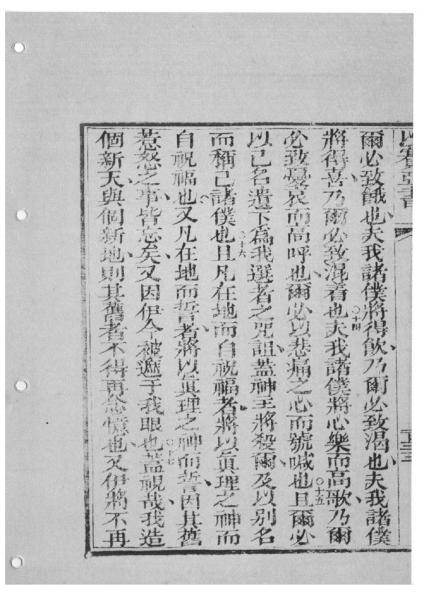 爾必致餓也夫我諸僕將得飲乃爾必致渴也夫我諸僕
將得喜乃爾必致混着也○十四夫我諸僕將心樂而高歌乃爾
必致憂哀而高呼也爾必以悲痛之心而號喊也○十五且爾必
以己名遺下爲我選者之咒詛蓋神主將殺爾及以別名
而稱己諸僕也○十六且凡在地而自祝福者將以眞理之神而
自祝福也又凡在地而誓者將以眞理之神而誓因其舊
惹怒之事皆忘矣又因伊今被遮于我眼也○十七蓋視哉我造
個新天與個新地則其舊者不得再念憶也又伊將不再